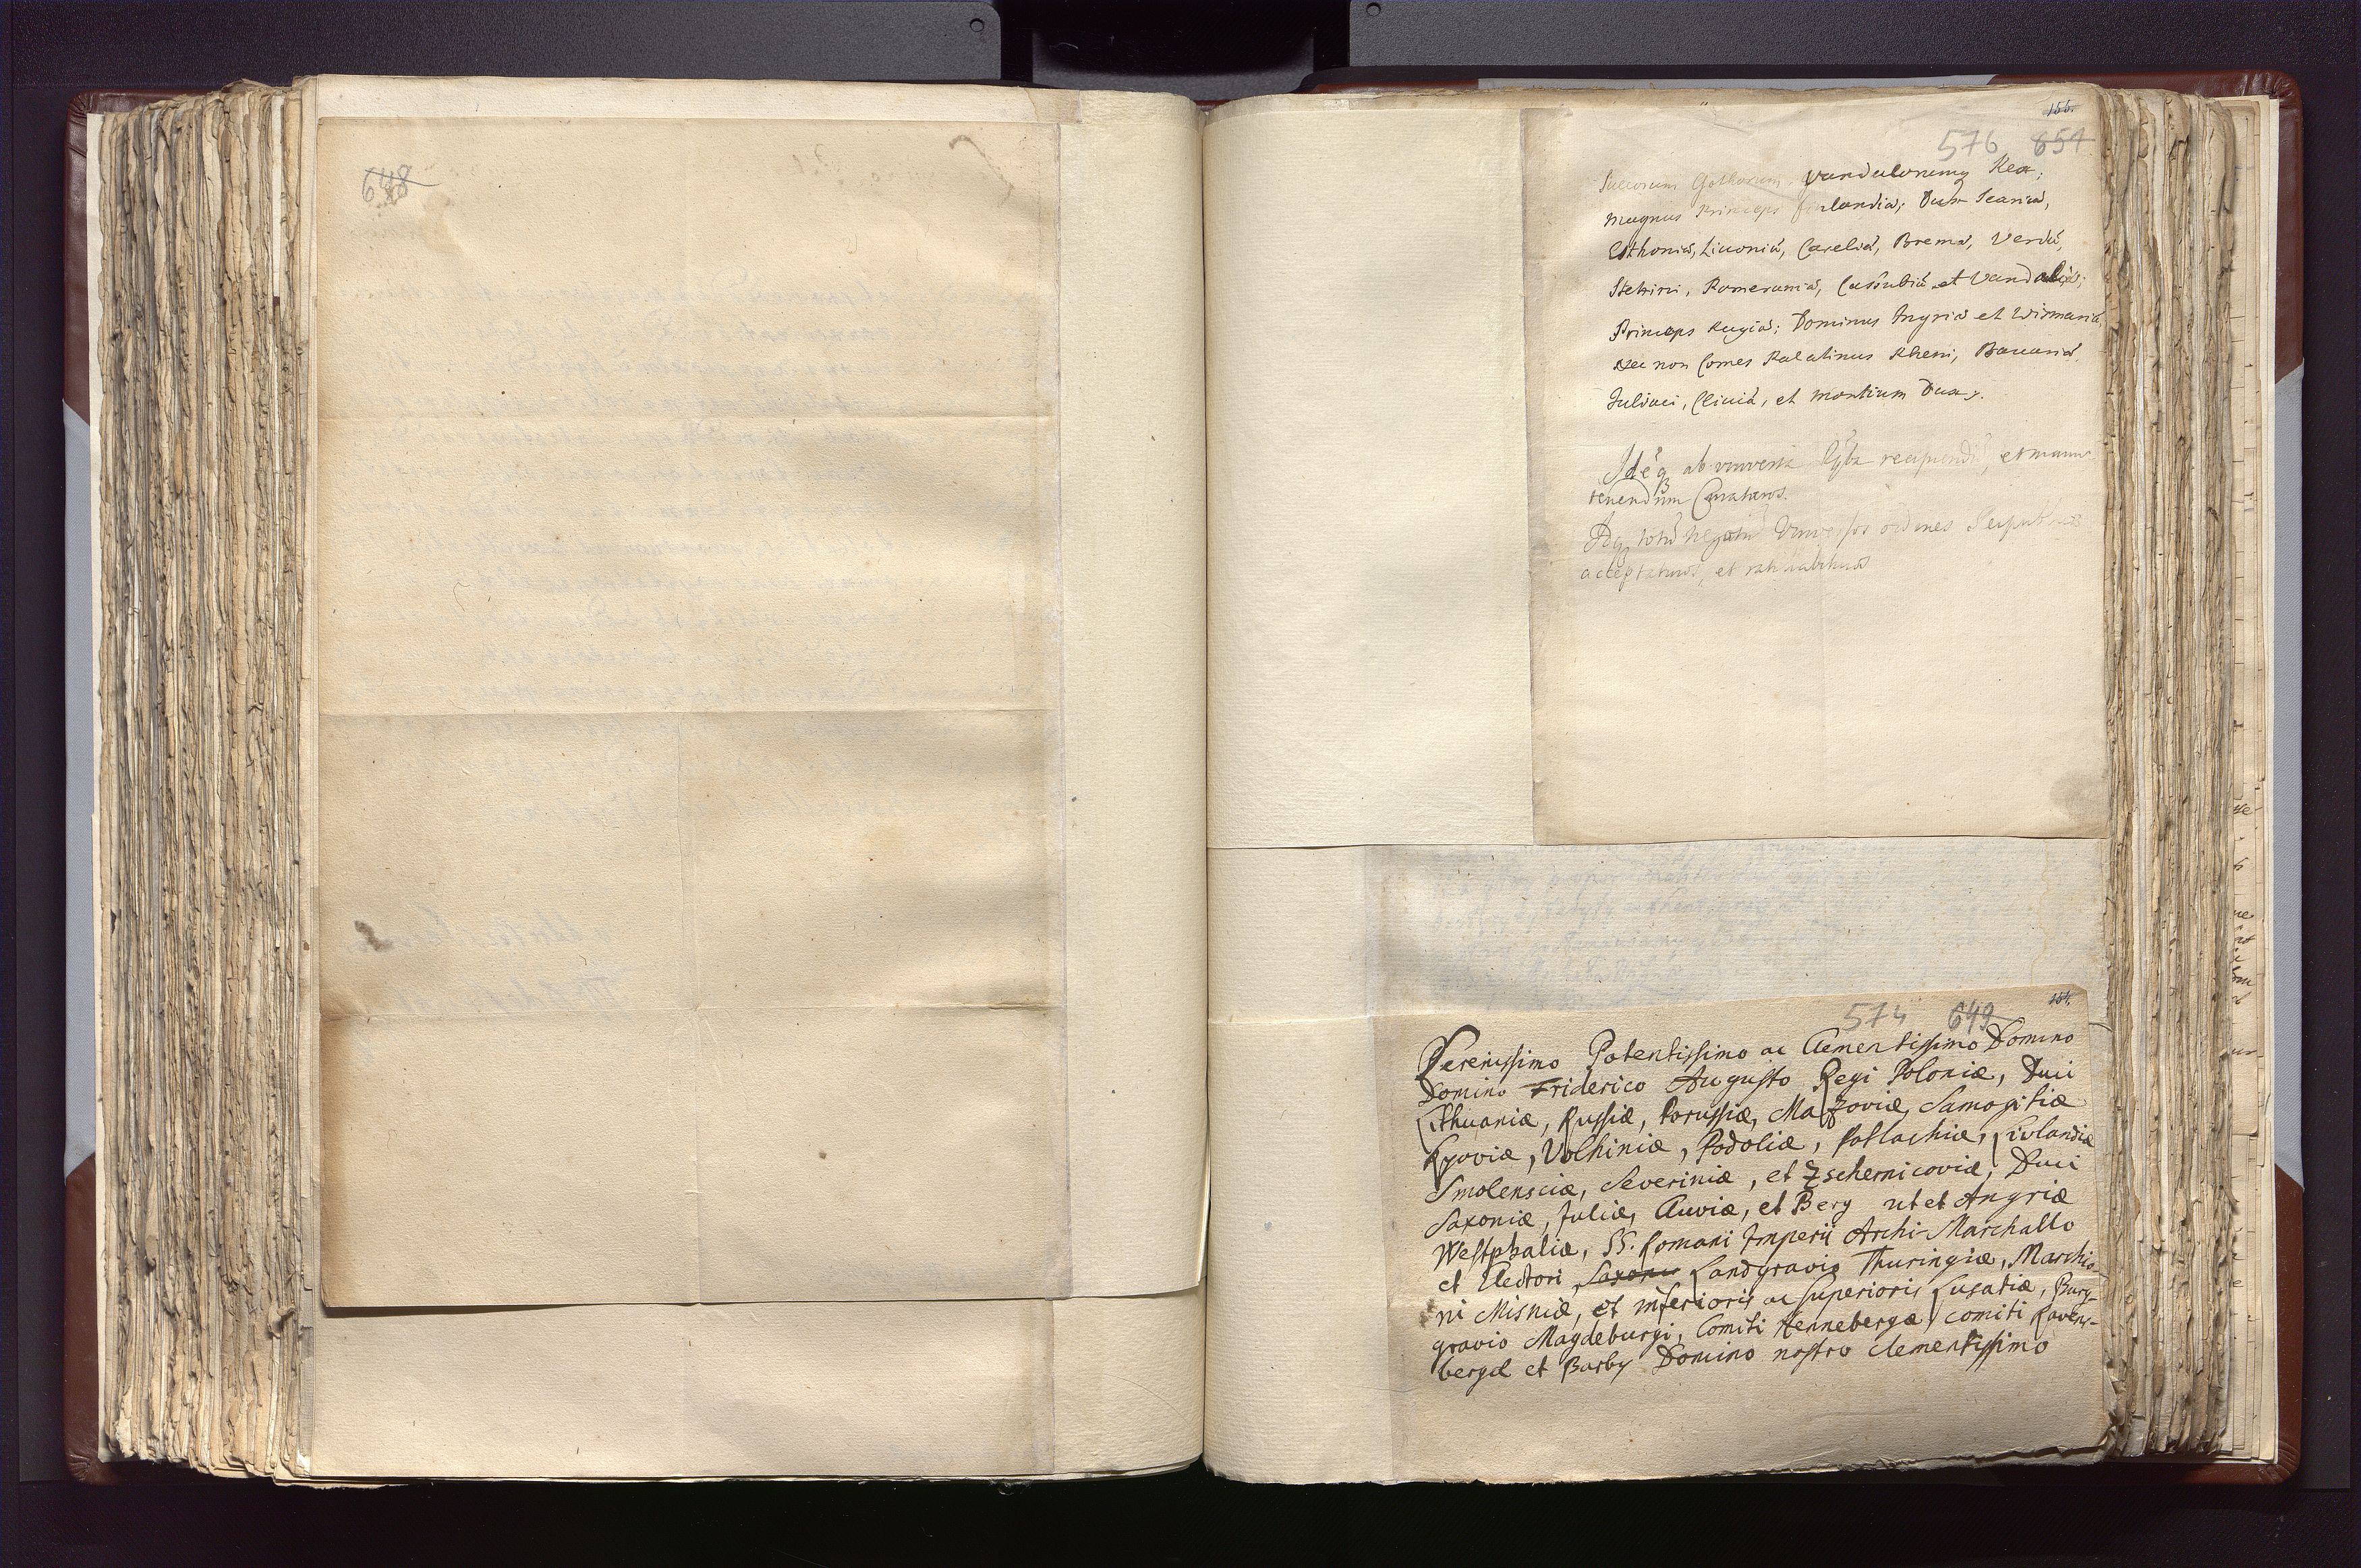 648
156.
576 651
Suecorum Gothorum Vandalorumq Rex;
Magnus Princeps Finlandiæ; Dux Scaniæ,
Esthoniæ, Liuoniæ, Careliæ, Bremæ, Verdæ,
Stetini, Pomeraniæ, Cassubiæ et Vandaliæ;
Princeps Rugiæ; Dominus Ingriæ et Wismariæ,
nec non Comes Palatinus Rheni, Bauariæ,
Juliaci, Cliuiæ, et Montium Dux.
ab universa et manu
tenendum Curaturos.
totū negotiū ordines
acceptaturos, et ratihabituros
574 649
154.
Serenissimo Potentissimo ac Clementissimo Domino
Domino Friderico Augusto Regi Poloniæ, Duci
Lithuaniæ, Russiæ, Porussiæ, Mazoviæ, Samogitiæ
Kyoviæ, Volhiniæ, Podoliæ, Potlachiæ, Livlandiæ
Smolensciæ, Severiniæ, et Zschernicoviæ, Duci
Saxoniæ, Juliæ, Cliviæ, et Berg ut et Angriæ
Westphaliæ, SS. Romani Imperii Archi-Marchallo
et Electori Saxoniæ Landgravio Thuringiæ, Marchio-
ni Misniæ, et inferioris ac superioris Lusatiæ, Burg-
gravio Magdeburgi, Comiti Hennebergæ, comiti Ravens-
bergæ et Barby Domino nostro clementissimo